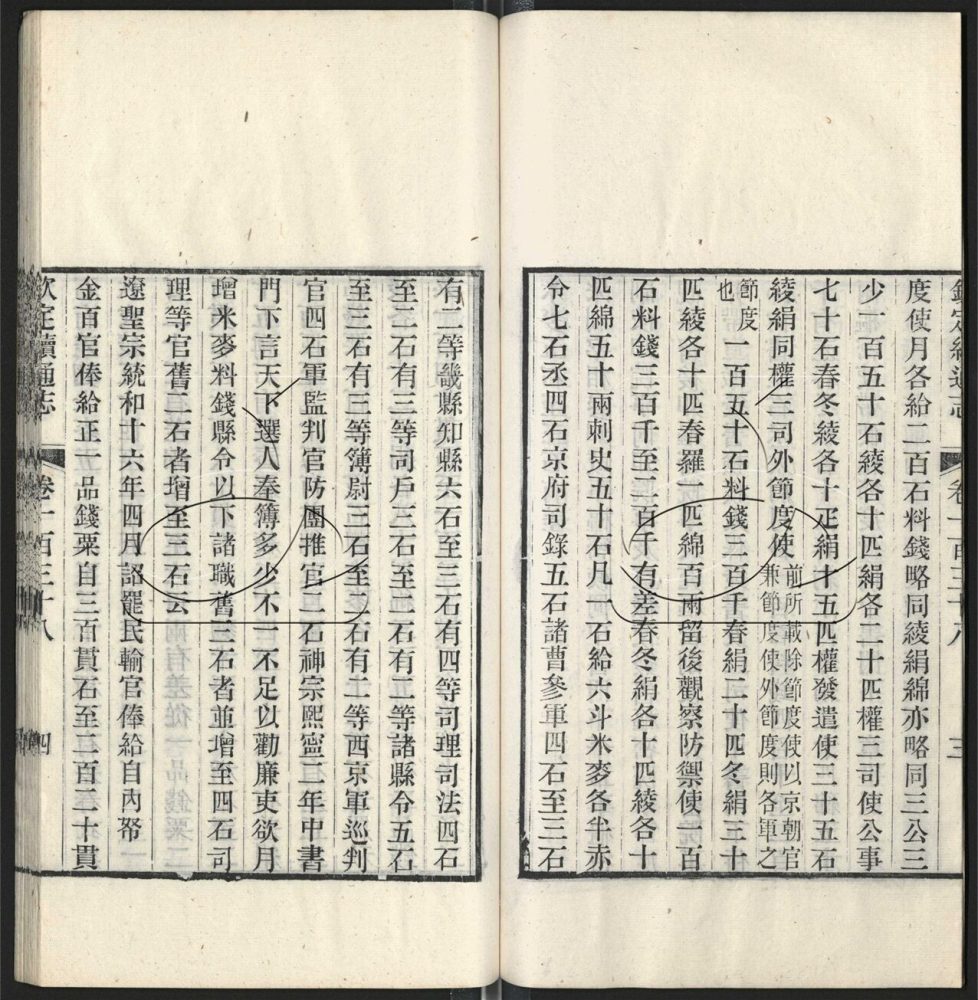 欽定續通志　卷一百三十八　三
度使月各給二百石料錢略同綾絹綿亦略同三公三
少一百五十石綾各十匹絹各二十匹權三司使公事
七十石春冬綾各十疋絹十五匹權發遣使三十五石
綾絹同權三司外節度使前所載除節度使以京朝官
兼節度使外節度則各軍之
節度
也
一百五十石料錢三百千春絹二十匹冬絹三十
匹綾各十匹春羅一匹綿百兩留後觀察防禦使一百
石料錢三百千至二百千有差春冬絹各十匹綾各十
匹綿五十兩刺史五十石凡一石給六斗米麥各半赤
令七石丞四石京府司錄五石諸曹參軍四石至三石
有二等畿縣知縣六石至三石有四等司理司法四石
至二石有三等司戶三石至二石有二等諸縣令五石
至三石有三等簿尉三石至二石有二等西京軍巡判
官四石軍監判官防團推官二石神宗熙寧二年中書
門下言天下選人奉簿多少不一不足以勸廉吏欲月
增米麥料錢縣令以下諸職舊三石者並增至四石司
理等官舊二石者增至三石云
遼聖宗統和十六年四月詔罷民輸官俸給自內帑
金百官俸給正一品錢粟自三百貫石至二百二十貫
欽定續通志　卷一百三十八　四